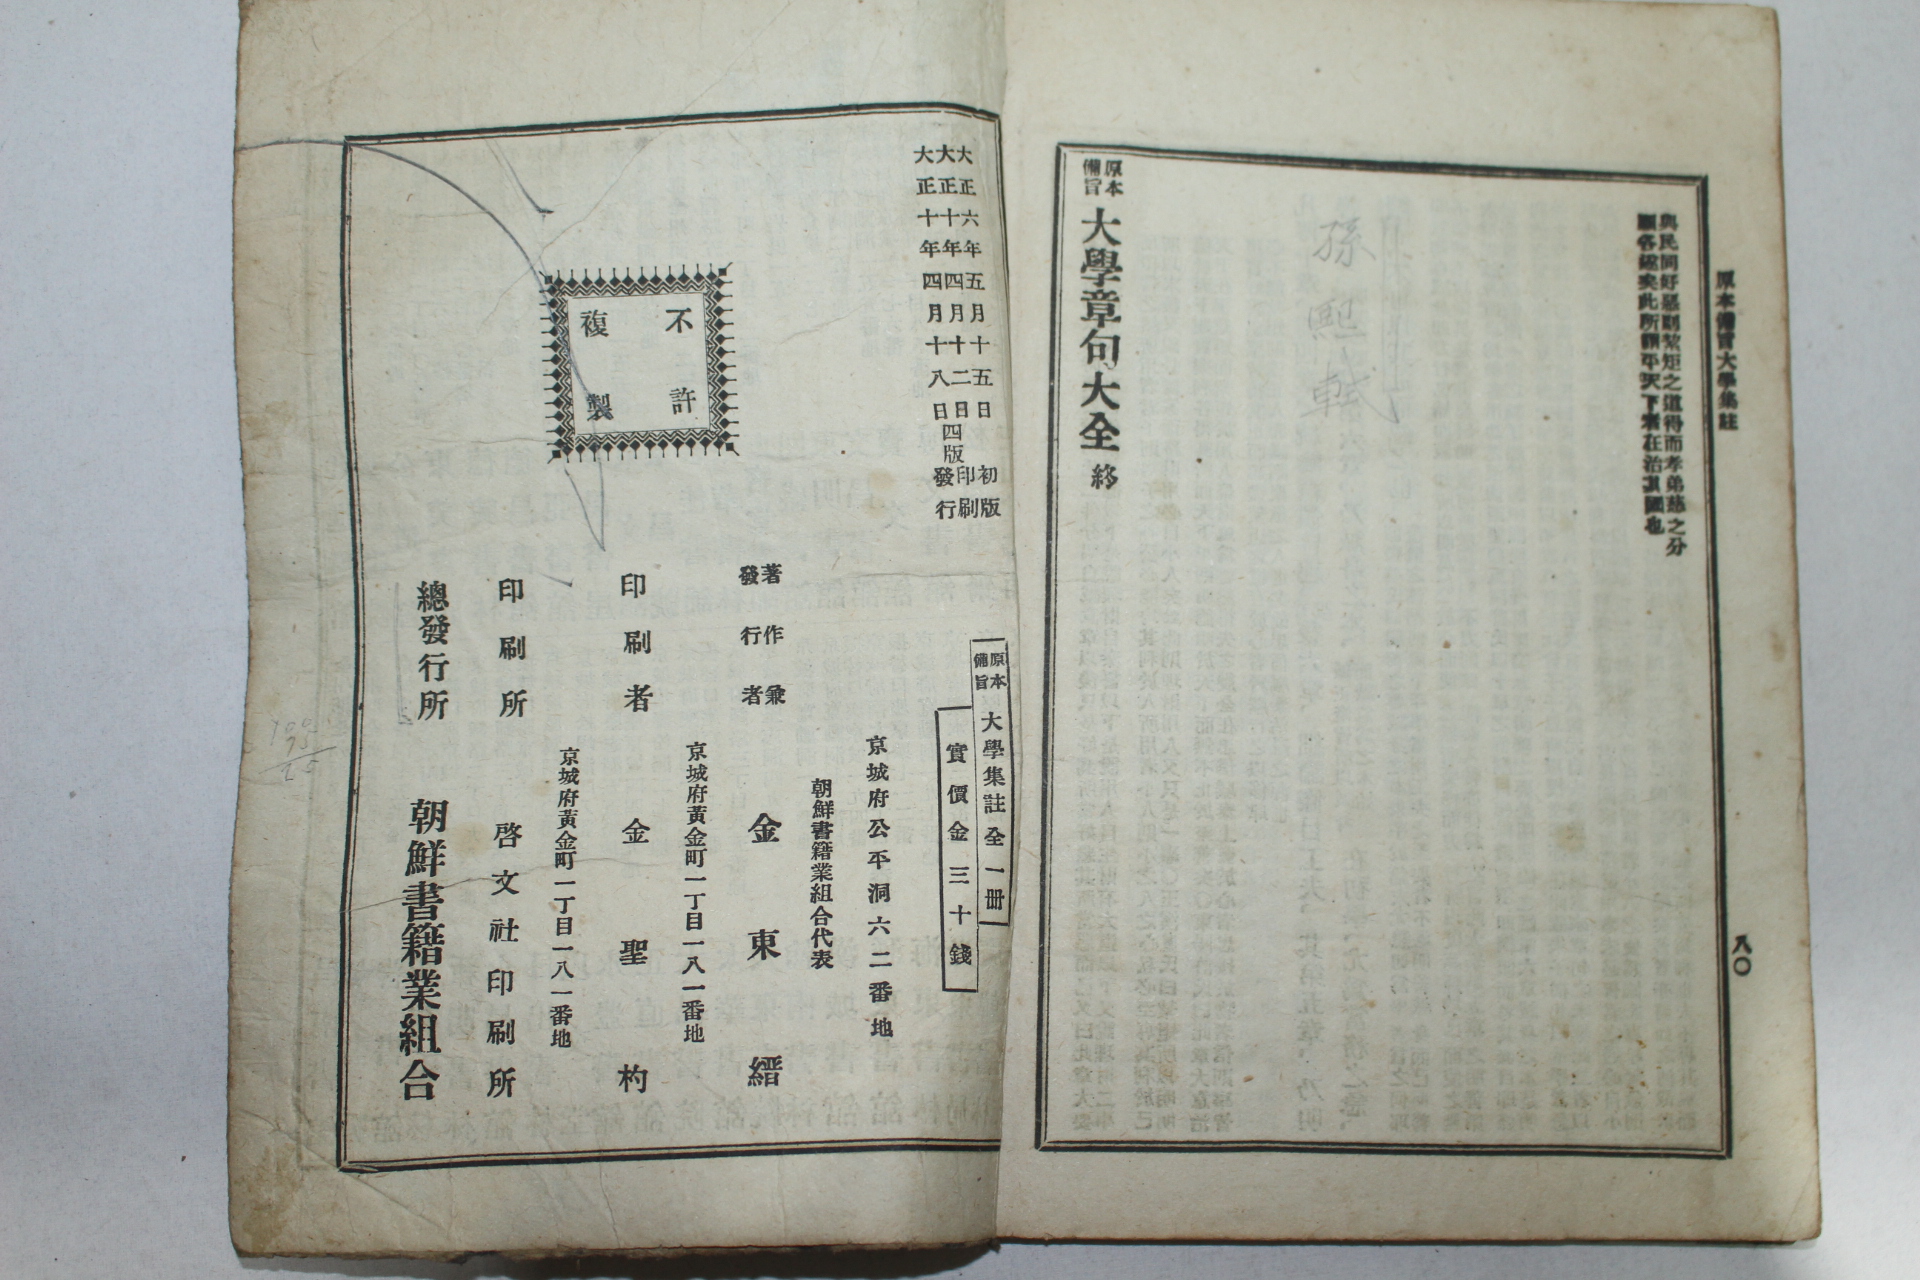 原本備旨大學集註
八〇
與民同好惡則絜矩之道得而孝弟慈之分
願各遂矣此所謂平天下者在治其國也
孫熙軾
原本備旨 大學章句大全 終
大正六年五月十五日 初版
大正十年四月十二日 四版 印刷
大正十年四月十八日 發行
不許
複製
原本備旨 大學集註 全一冊
實價金三十錢
京城府公平洞六二番地
朝鮮書籍業組合代表
著作兼發行者 金東縉
京城府黃金町一丁目一八一番地
印刷者 金聖杓
京城府黃金町一丁目一八一番地
印刷所 啓文社印刷所
總發行所 朝鮮書籍業組合